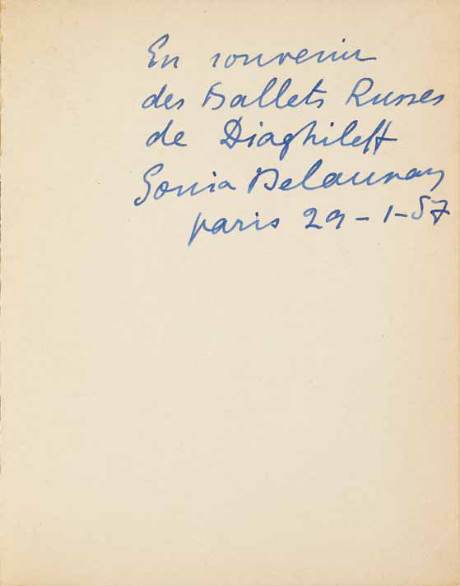 En souvenir
des Ballets Russes
de Diaghileff
Sonia Delaunay
paris 29-1-57